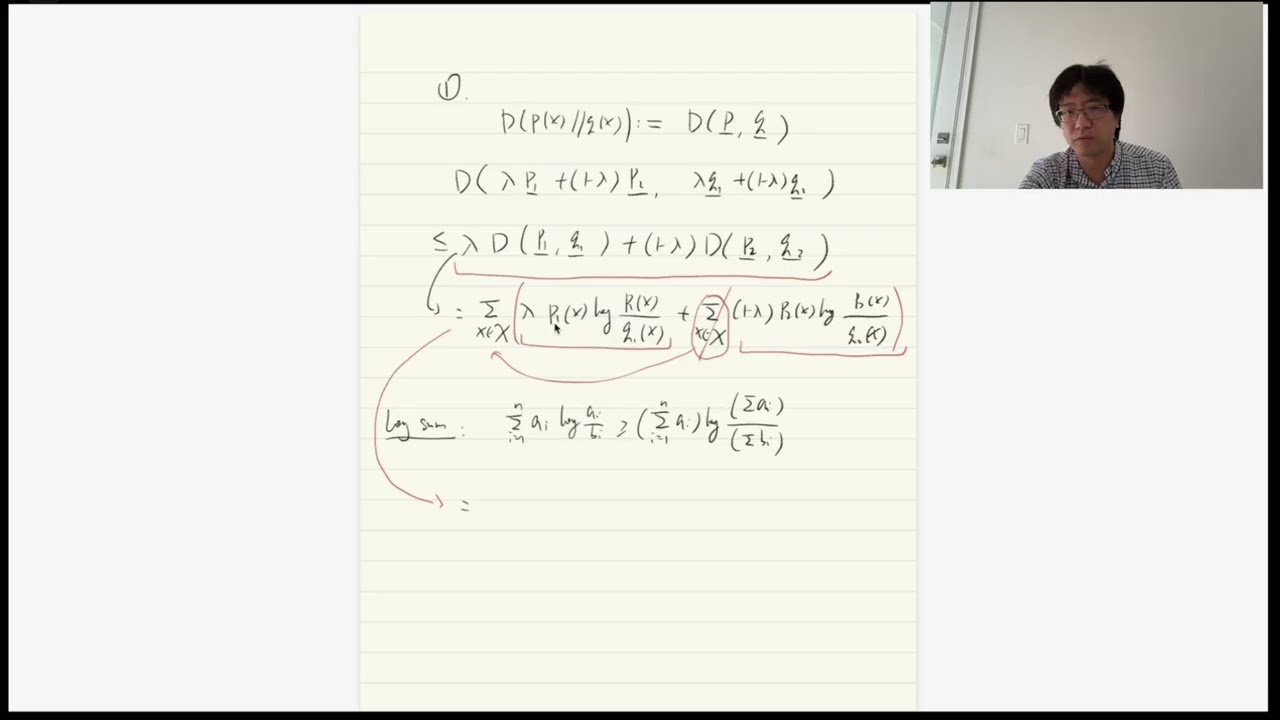 ①.
D(P(x)//q(x)) := D(P, q)
D(λP₁ + (1-λ)P₂, λq₁ + (1-λ)q₂)
≤ λ D(P₁, q₁) + (1-λ) D(P₂, q₂)
= Σ_{x∈X} (λ P₁(x) log P₁(x)/q₁(x) + Σ_{x∈X} (1-λ) P₂(x) log P₂(x)/q₂(x))
Log sum: Σ_{i=1}^n a_i log a_i/b_i ≥ (Σ_{i=1}^n a_i) log (Σa_i)/(Σb_i)
=